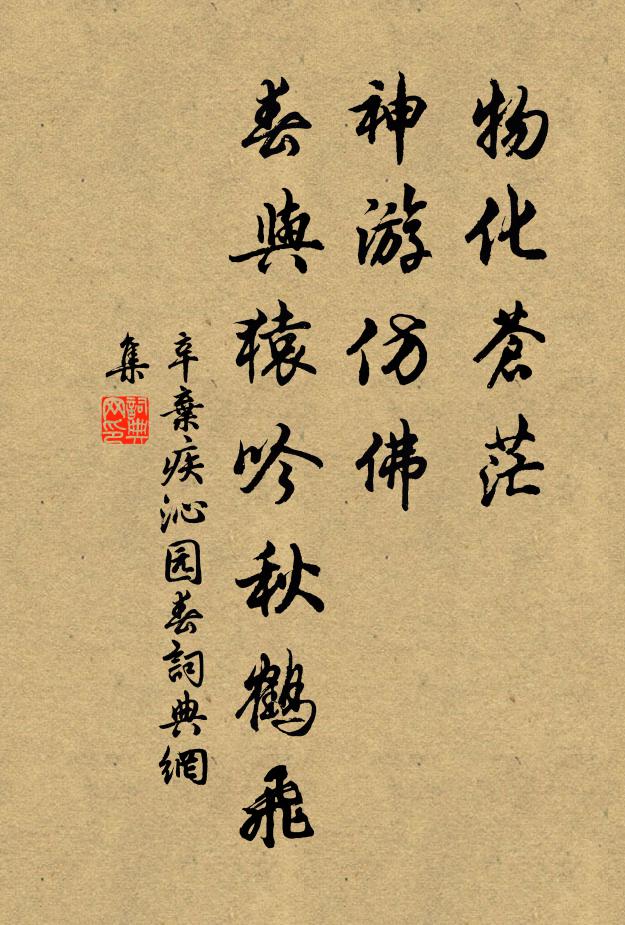 物化蒼茫
神游仿佛
春與猿吟秋鶴飛
辛棄疾沁园春詞典網
集
詞典
网印